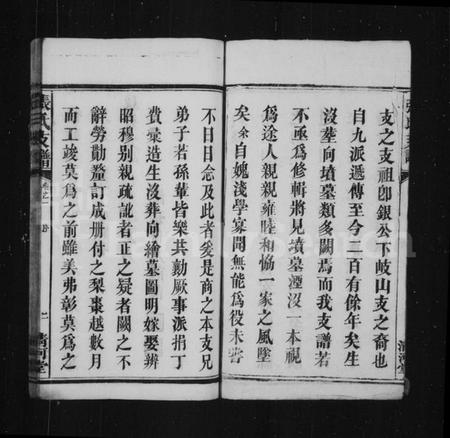 支之支祖卽銀公下岐山支之裔也
自九派遞傳至今二百有餘年矣生
沒塟向墳墓類多闕焉而我支譜若
不亟爲修輯將見墳墓湮沒一本視
爲途人親親雍睦和恊一家之風墜
矣余自媿淺學寡聞無能爲役未嘗
不日日念及此者爰是商之本支兄
弟子若孫軰皆樂共勷厥事派捐丁
費彙造生沒葬向繪墓圖明嫁娶辨
昭穆別親疏訛者正之疑者闕之不
辭勞勩釐訂成册付之梨棗越數月
而工竣莫爲之前雖美弗彰莫爲之
張氏支譜
二
清河堂